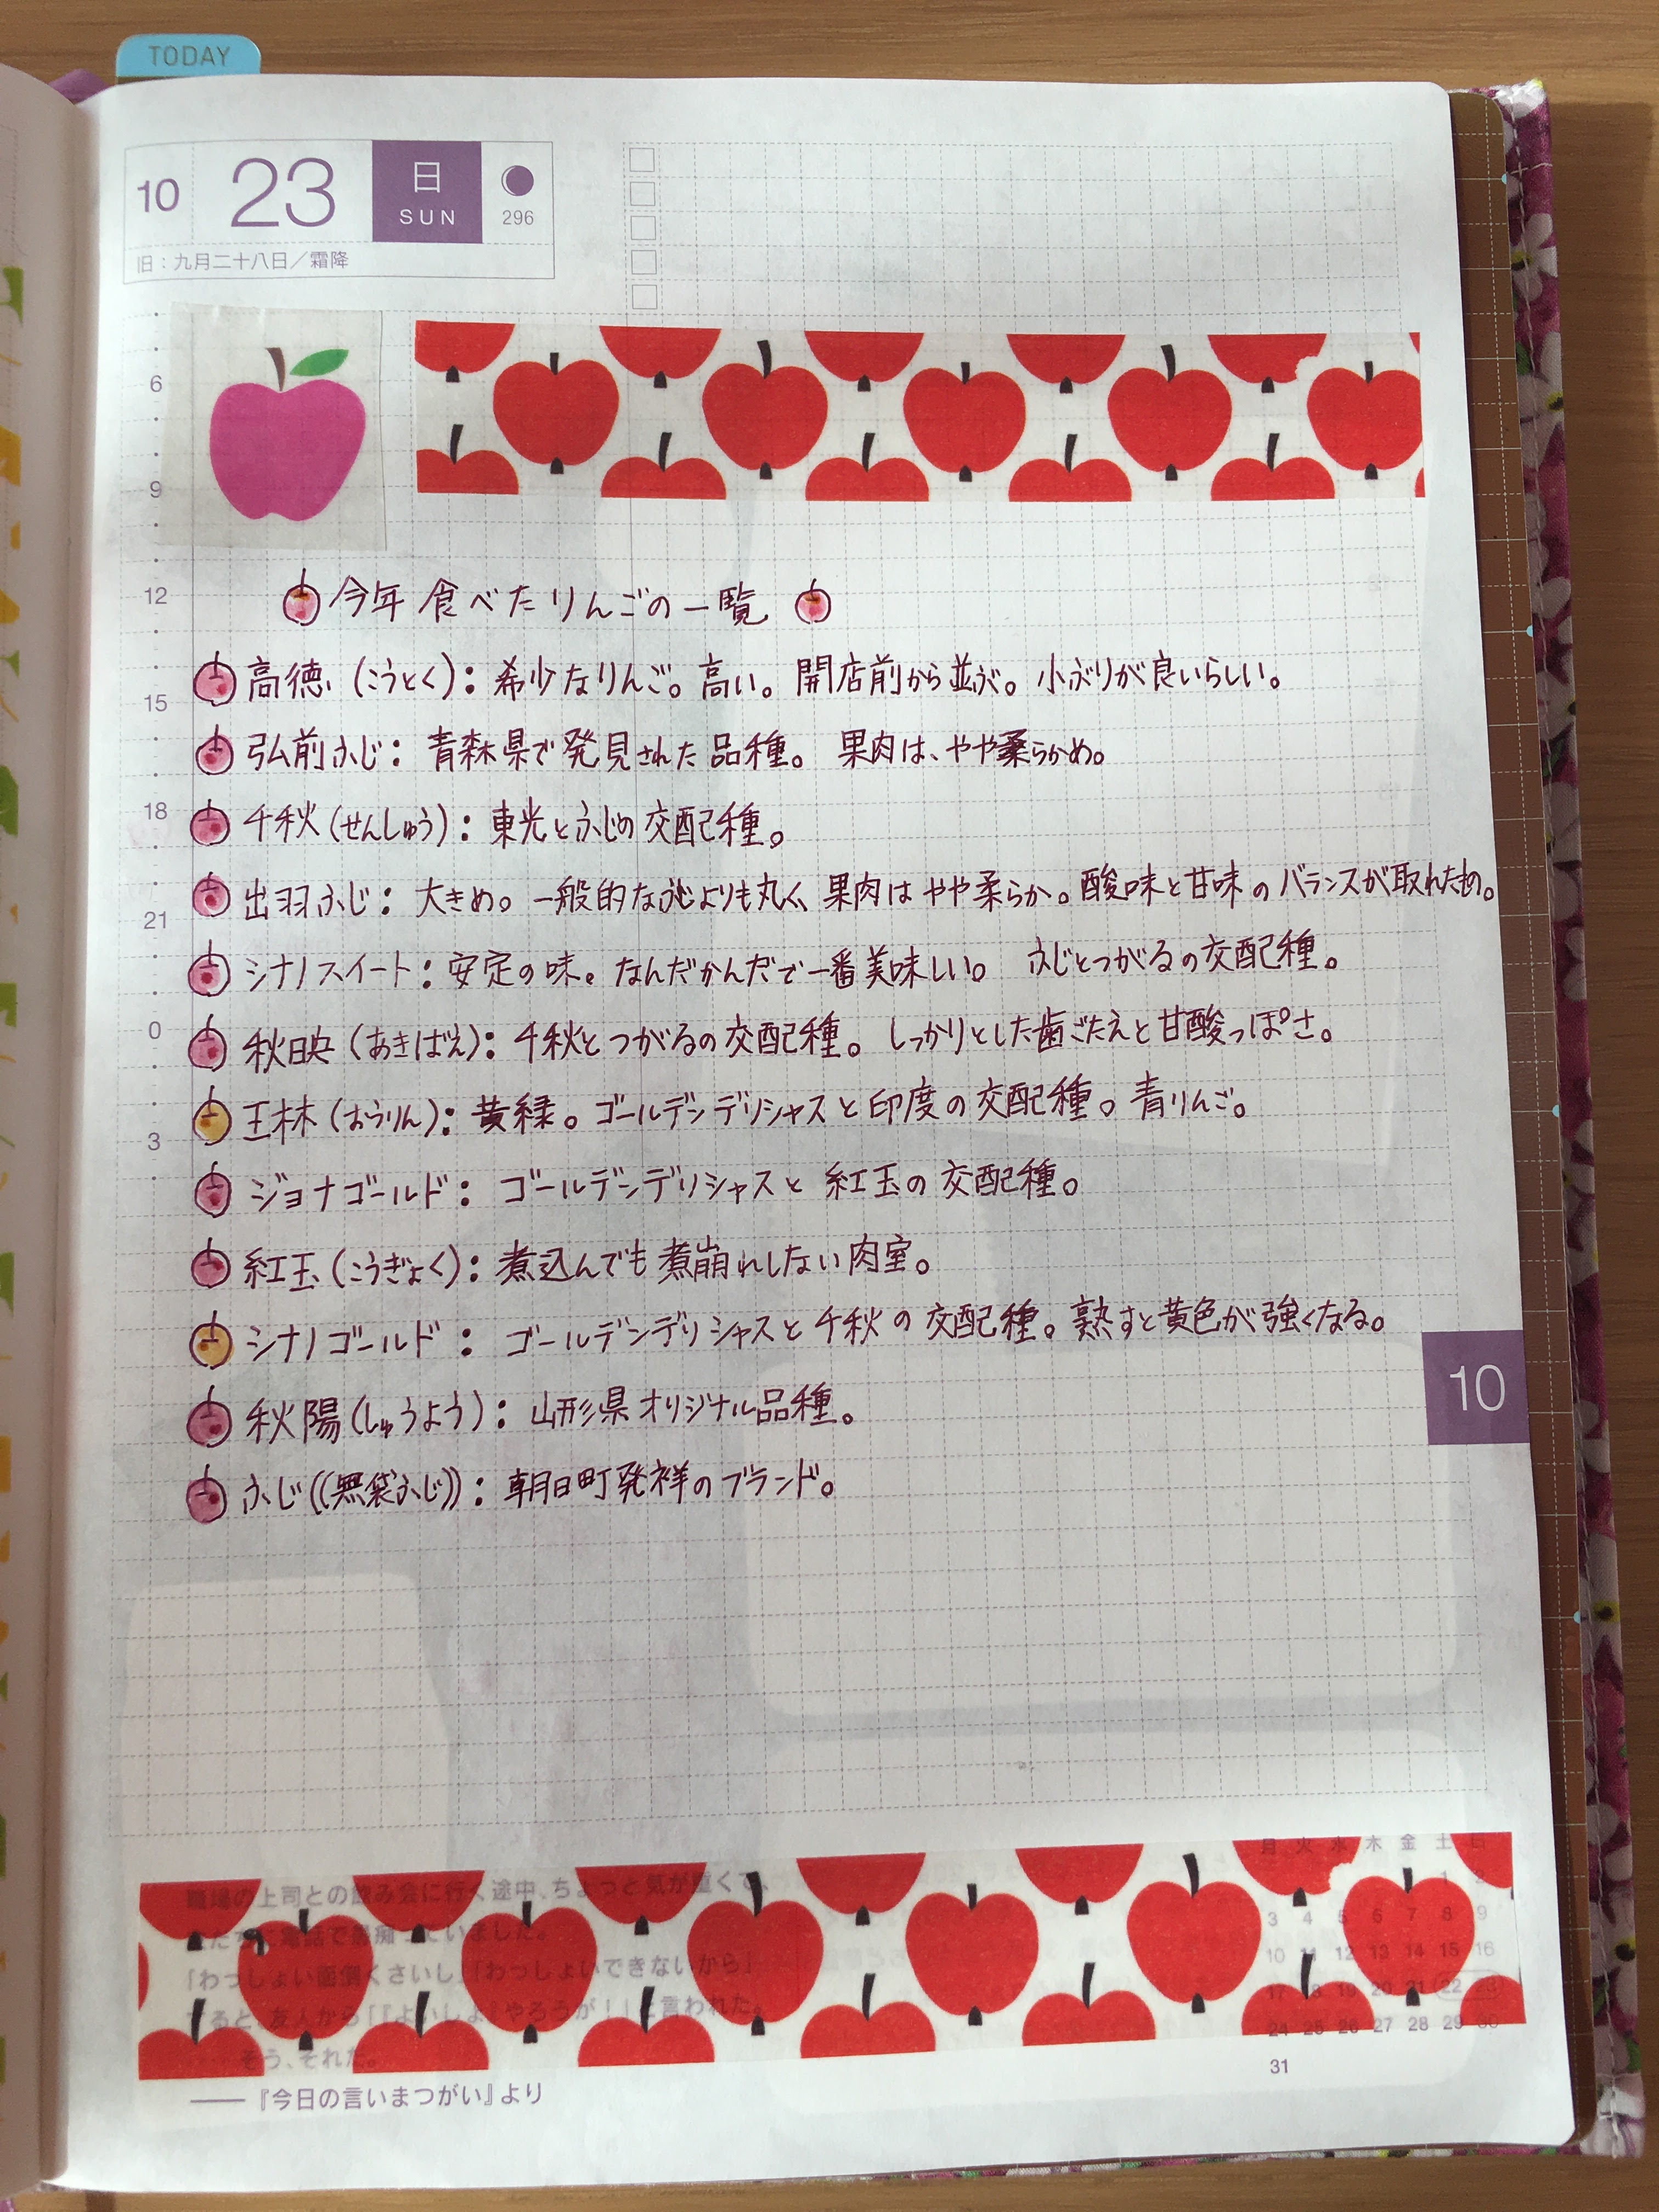 TODAY
10 23 日 SUN 296
旧：九月二十八日／霜降
6
9
12
今年 食べたりんごの一覧
高徳（こうとく）：希少なりんご。高い。開店前から並ぶ。小ぶりが良いらしい。
15
弘前ふじ：青森県で発見された品種。果肉は、やや柔らかめ。
18
千秋（せんしゅう）：東光とふじの交配種。
出羽ふじ：大きめ。一般的なふじよりも丸く、果肉はやや柔らか。酸味と甘味のバランスが取れため。
21
シナノスイート：安定の味。なんだかんだで一番美味しい。ふじとつがるの交配種。
0
秋映（あきばえ）：千秋とつがるの交配種。しっかりとした歯ごたえと甘酸っぽさ。
王林（おうりん）：黄緑。ゴールデンデリシャスと印度の交配種。青りんご。
3
ジョナゴールド：ゴールデンデリシャスと紅玉の交配種。
紅玉（こうぎょく）：煮込んでも煮崩れしない肉室。
シナノゴールド：ゴールデンデリシャスと千秋の交配種。熟すと黄色が強くなる。
10
秋陽（しゅうよう）：山形県オリジナル品種。
ふじ((無袋ふじ))：朝日町発祥のブランド。
月 火 水 木 金 土 日
1 2
3 4 5 6 7 8 9
10 11 12 13 14 15 16
17 18 19 20 21 22 23
24 25 26 27 28 29 30
31
職場の上司との飲み会に行く途中、ちょっと気が重くて、
電話で愚痴っていました。
「わっしょい面倒くさいし」「わっしょいできないから」
すると、友人から「『よいしょ』やろうが！」と言われた。
そう、それだ。
——『今日の言いまつがい』より